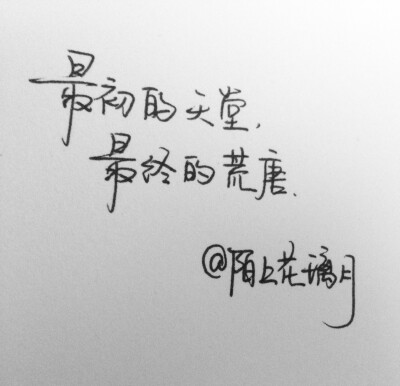 最初的天堂,
最终的荒唐.
@陌上花璃月